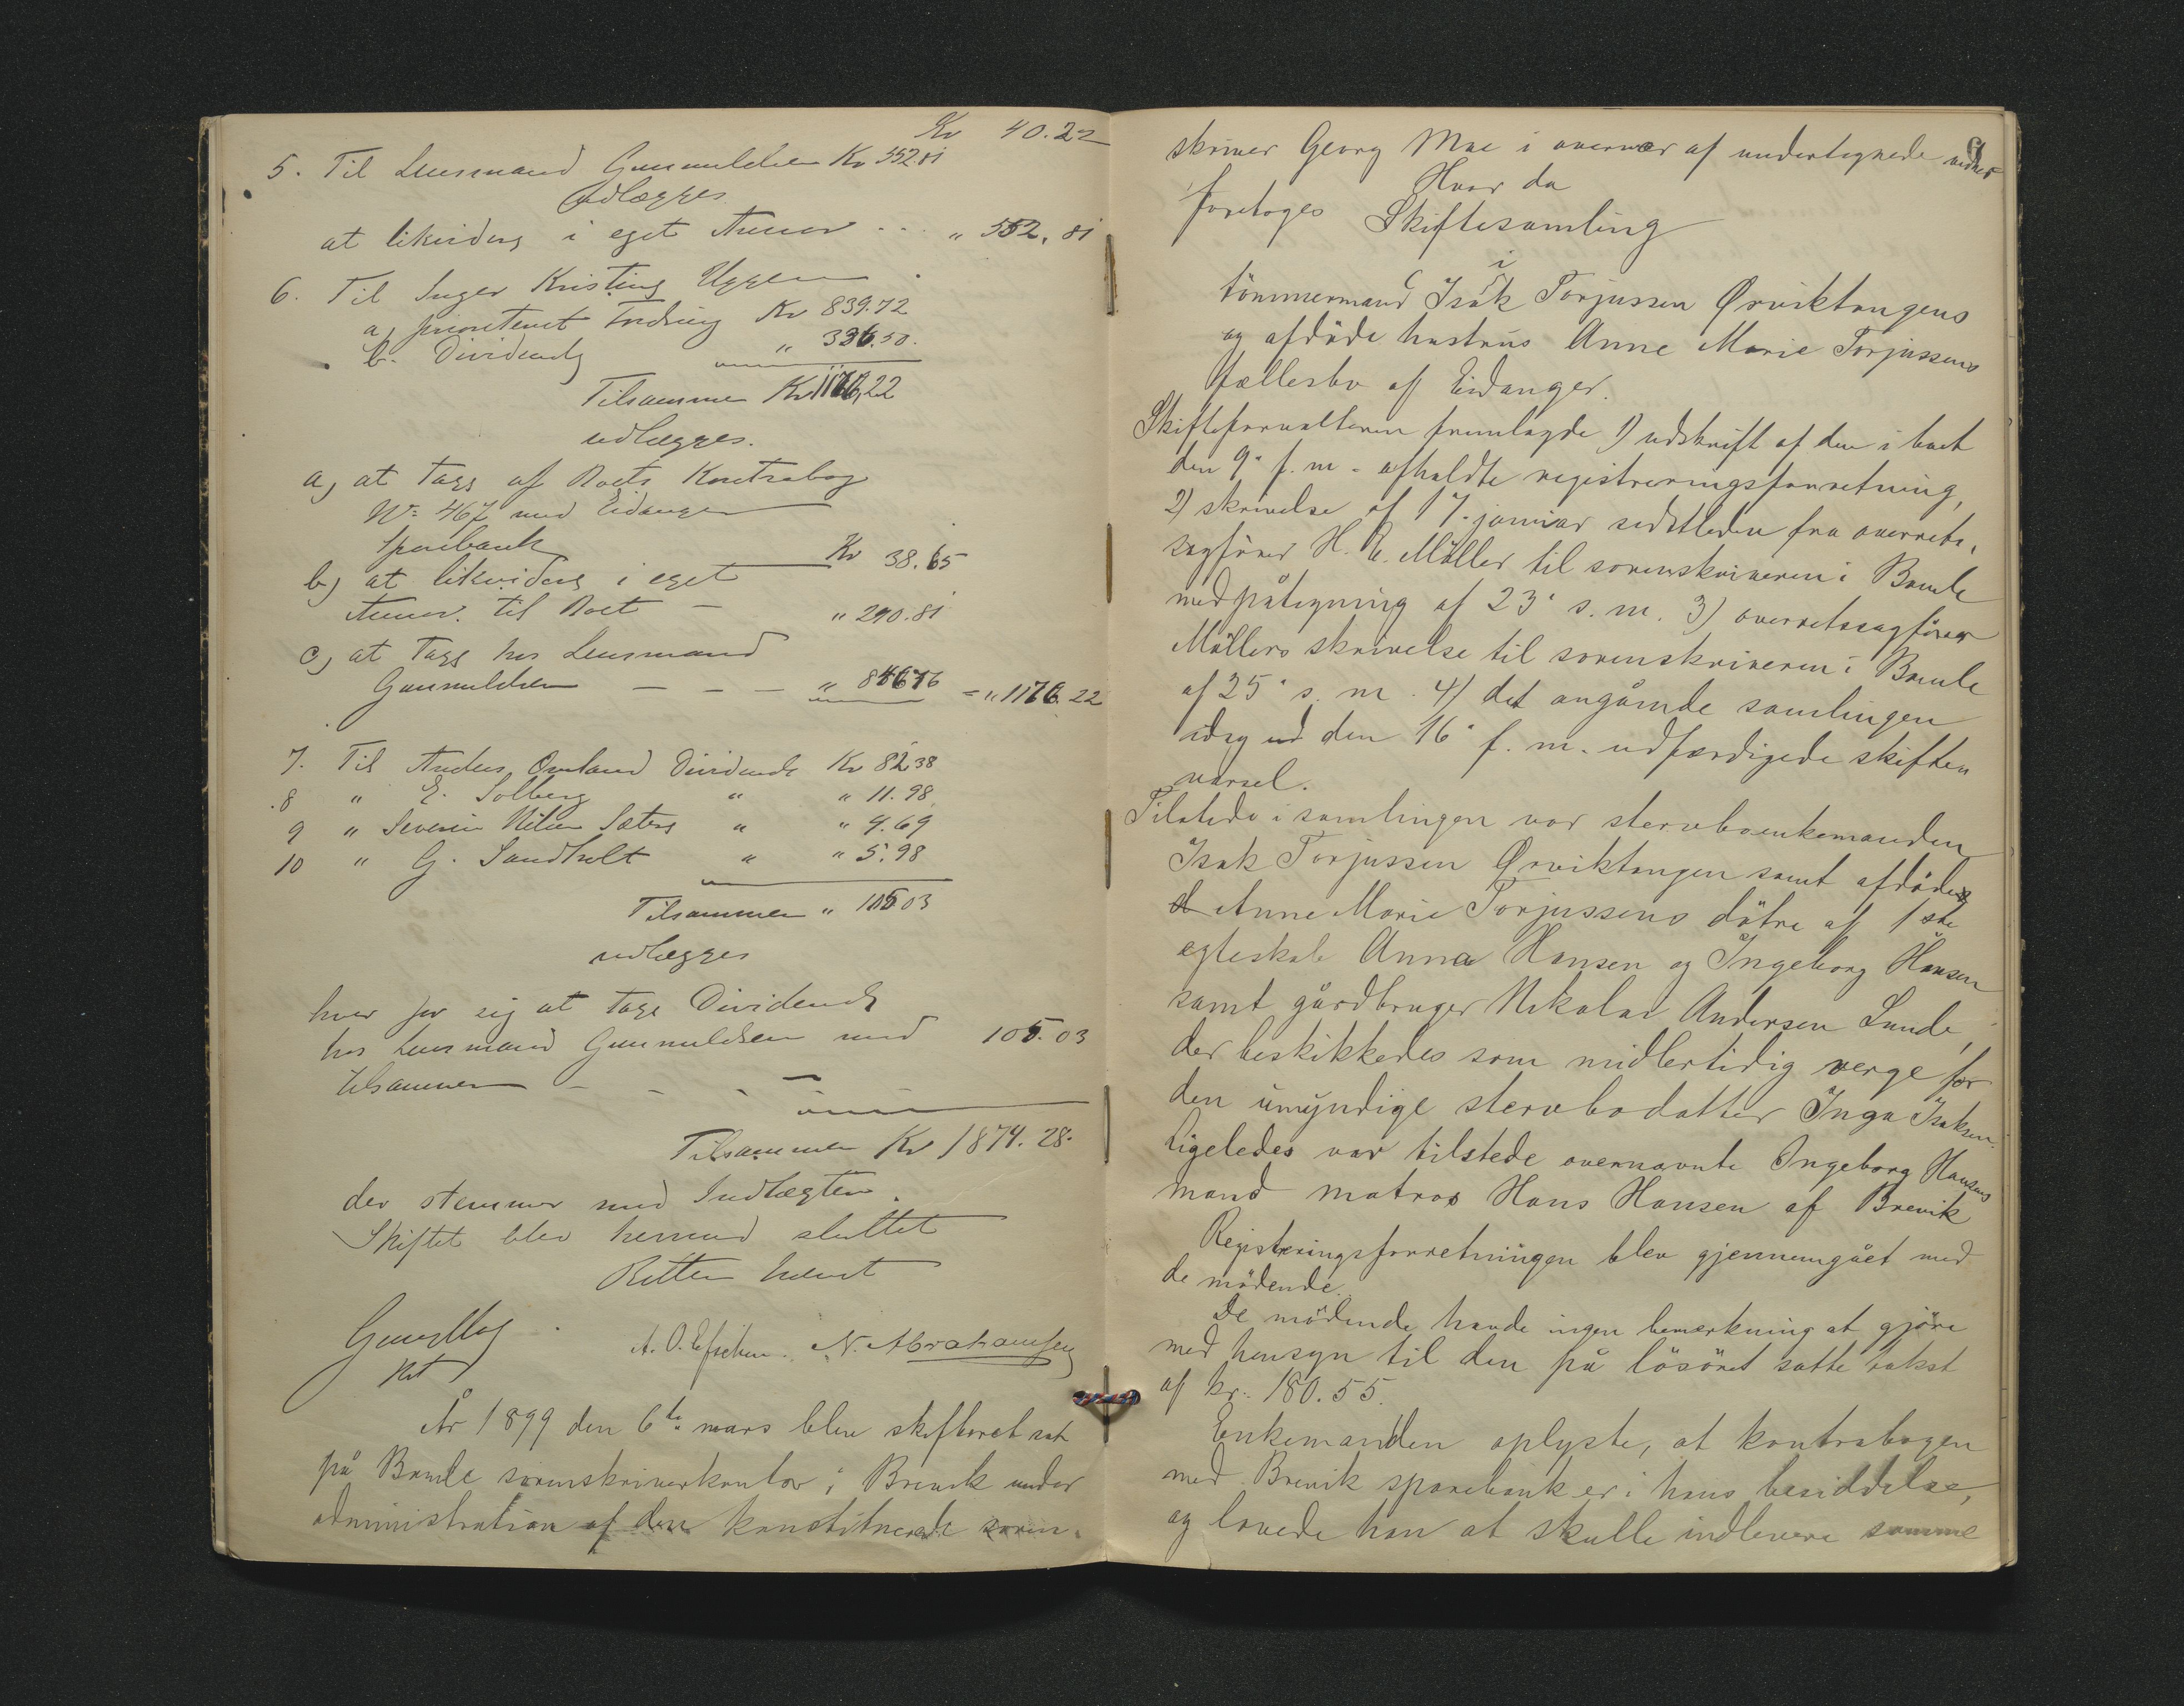 Kr 40.22
5. Til Lensmand Gunnuldsen Kr 552.81
Udlægges
at likvideres i eget Ansvar . . . " 552,81
6. Til Inger Kristine Uggen
a, prioriteret Fordring Kr 839.72
b. Dividende " 336.50.
Tilsammen Kr 1176,22
udlægges.
a, at tage af Boets Kontrabog
No 467 med Eidanger
Sparebank Kr 38.65
b, at likvideres i eget
Ansv. til Boet - " 290.81
c, at tage hos Lensmand
Gunnuldsen - - - " 846 76 = " 1176.22
7. Til Anders Omland Dividende Kr 82.38
8 " E. Solberg " " 11.98
9 " Severin Nilsen Sæters " " 4.69
10 " G. Sandholt " " 5.98
Tilsammen " 105 03
udlægges
hver for sig at tage Dividende
hos Lensmand Gunnuldsen med 105.03
tilsammen - - -
Tilsammen Kr 1874.28.
der stemmer med Indtægten.
Skiftet blev hermed sluttet
Retten hævet
Georg Mae
kst
N. Abrahamsen
År 1899 den 6te mars blev skifteret sat
på Bamle sorenskriverkontor i Brevik under
administration af den konstituerede soren-
9
skriver Georg Mae i overvær af undertegnede vidner
Hvor da
foretoges Skiftesamling
i
tömmermand Isak Torjussen Ørviktangens
og afdöde hustrus Anne Marie Torjussens
fællesbo af Eidanger.
Skifteforvalteren fremlagde 1) udskrift af den i boet
den 9. f. m. afholdte registreringsforretning,
2) skrivelse af 17. januar sidstleden fra overrets-
sagförer H. E. Möller til sorenskriveren i Bamle
med påtegning af 23. s. m. 3) overretssagförer
Möllers skrivelse til sorenskriveren i Bamle
af 25. s. m. 4) det angående samlingen
idag ud den 16. f. m. udfærdigede skifte-
varsel.
Tilstede i samlingen var stervboenkemanden
Isak Torjussen Ørviktangen samt afdödes
d Anne Marie Torjussens dötre af 1ste
egteskab Anna Hansen og Ingeborg Hansen
samt gårdbruger Nikolai Andersen Lunde,
der beskikkedes som midlertidig verge for
den umyndige stervbodatter Inga Isaksen.
Ligeledes var tilstede overnævnte Ingeborg Hansens
mand matros Hans Hansen af Brevik
Registreringsforretningen blev gjennemgået med
de mödende.
De mödende havde ingen bemerkning at gjöre
med hensyn til den på lösöret satte takst
af kr. 180.55.
Enkemanden oplyste, at kontrabogen
med Brevik sparebank er i hans besiddelse,
og lovede han at skulle indlevere samme